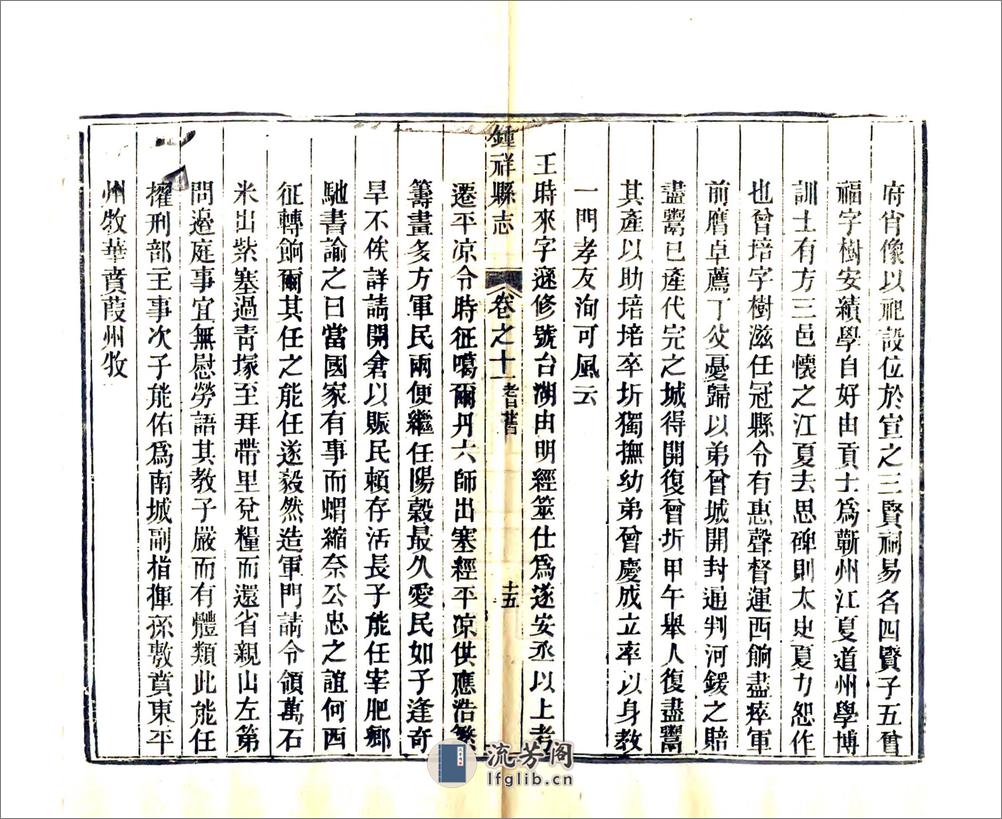 府肖像以祀設位於宣之三賢祠易名四賢子五曾
福字樹安績學自好由貢士為蘄州江夏道州學博
訓士有方三邑懷之江夏去思碑則太史夏力恕作
也曾培字樹滋任冠縣令有惠聲督運西餉盡瘁軍
前膺卓薦丁父憂歸以弟曾城開封通判河鍰之賠
盡鬻已產代完之城得開復曾圻甲午舉人復盡鬻
其產以助培培卒圻獨撫幼弟曾慶成立率以身教
一門孝友洵可風云
王時來字遜修號台湖由明經筮仕為遂安丞以上考
鍾祥縣志
卷之十一
耆舊
十五
遷平凉令時征噶爾丹六師出塞經平凉供應浩繁
籌畫多方軍民兩便繼任陽穀最久愛民如子逢奇
旱不俟詳請開倉以賑民賴存活長子能任宰肥鄉
馳書諭之曰當國家有事而蝟縮奈公忠之誼何西
征轉餉爾其任之能任遂毅然造軍門請令領萬石
米出紫塞過青塚至拜帶里兌糧而還省親山左第
問邉庭事宜無慰勞語其教子嚴而有體類此能任
擢刑部主事次子能佑為南城副指揮孫敷賁東平
州牧華賁葭州牧
流芳閣
lfglib.cn